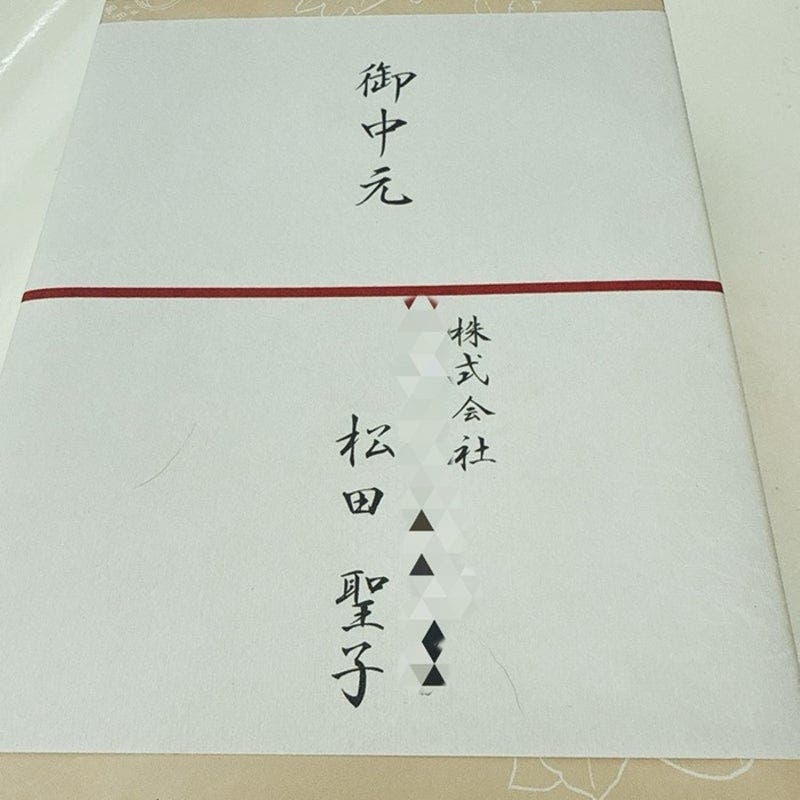 御中元
株式会社
松田 聖子